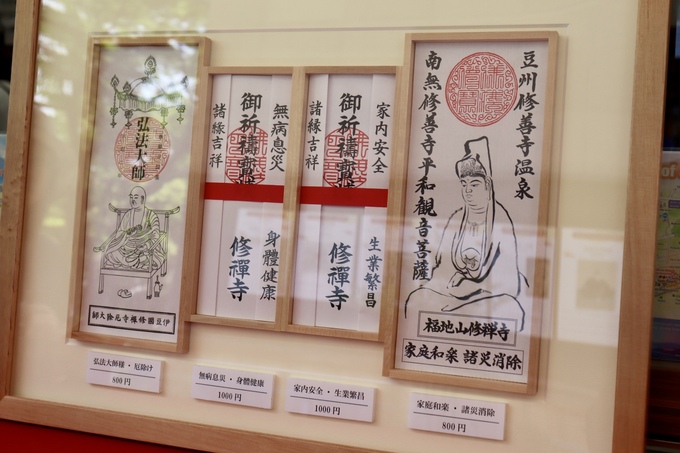 弘法大師
伊豆國修禅寺厄除大師
諸縁吉祥
御祈禱寶牘
無病息災
修禪寺
身體健康
諸縁吉祥
御祈禱寶牘
家内安全
修禪寺
生業繁昌
豆州修善寺温泉
南無修善寺平和観音菩薩
福地山修禅寺
家庭和楽 諸災消除
弘法大師様・厄除け
800円
無病息災・身體健康
1000円
家内安全・生業繁昌
1000円
家庭和楽・諸災消除
800円